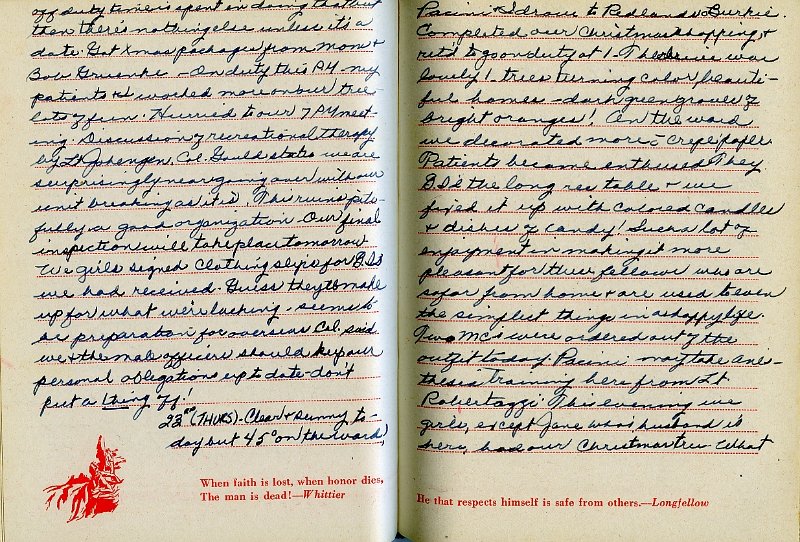 off duty time is spent in doing that but
then there's nothing else unless it's a
date. Got Xmas packages from Mom &
Bow Gruenke - On duty this P.M. my
patients & I worked more on our tree -
lots of fun. Hurried to our 7 PM meet-
ing. Discussion of recreational therapy
by Lt Johengen, Col. Gould states we are
surprisingly near going over with our
unit breaking as it is. This ruins piti-
fully a good organization - Our final
inspection will take place tomorrow
We girls signed clothing slips for G.I.'s
we had received. Guess they'll make
up for what we're lacking. seems to
be preparation for overseas. Col. said
we & the male officers should keep our
personal obligations up to date - don't
put a thing off!
23rd (THURS) - Clear & sunny to-
day but 45° on the ward,
When faith is lost, when honor dies,
The man is dead!—Whittier
Pacini & I drove to Redlands & Burkie.
Completed our Christmas shopping &
ret'd to go on duty at 1. The drive was
lovely! trees turning color, beauti-
ful homes - dark green groves of
bright oranges! On the ward
we decorated more - crepe paper
Patients became enthused They
G.I.'d the long rec table & we
fixed it up with colored candles
& dishes of candy! Such a lot of
enjoyment in making it more
pleasant for these fellows who are
so far from home & are used to even
the simplest things in a happy life.
Two MC's were ordered out of the
outfit today. Pacini may take anes-
thesia training here from Lt
Robertazzi. This evening we
girls, except Jane who's husband is
here, had our Christmas tree - What
He that respects himself is safe from others.—Longfellow